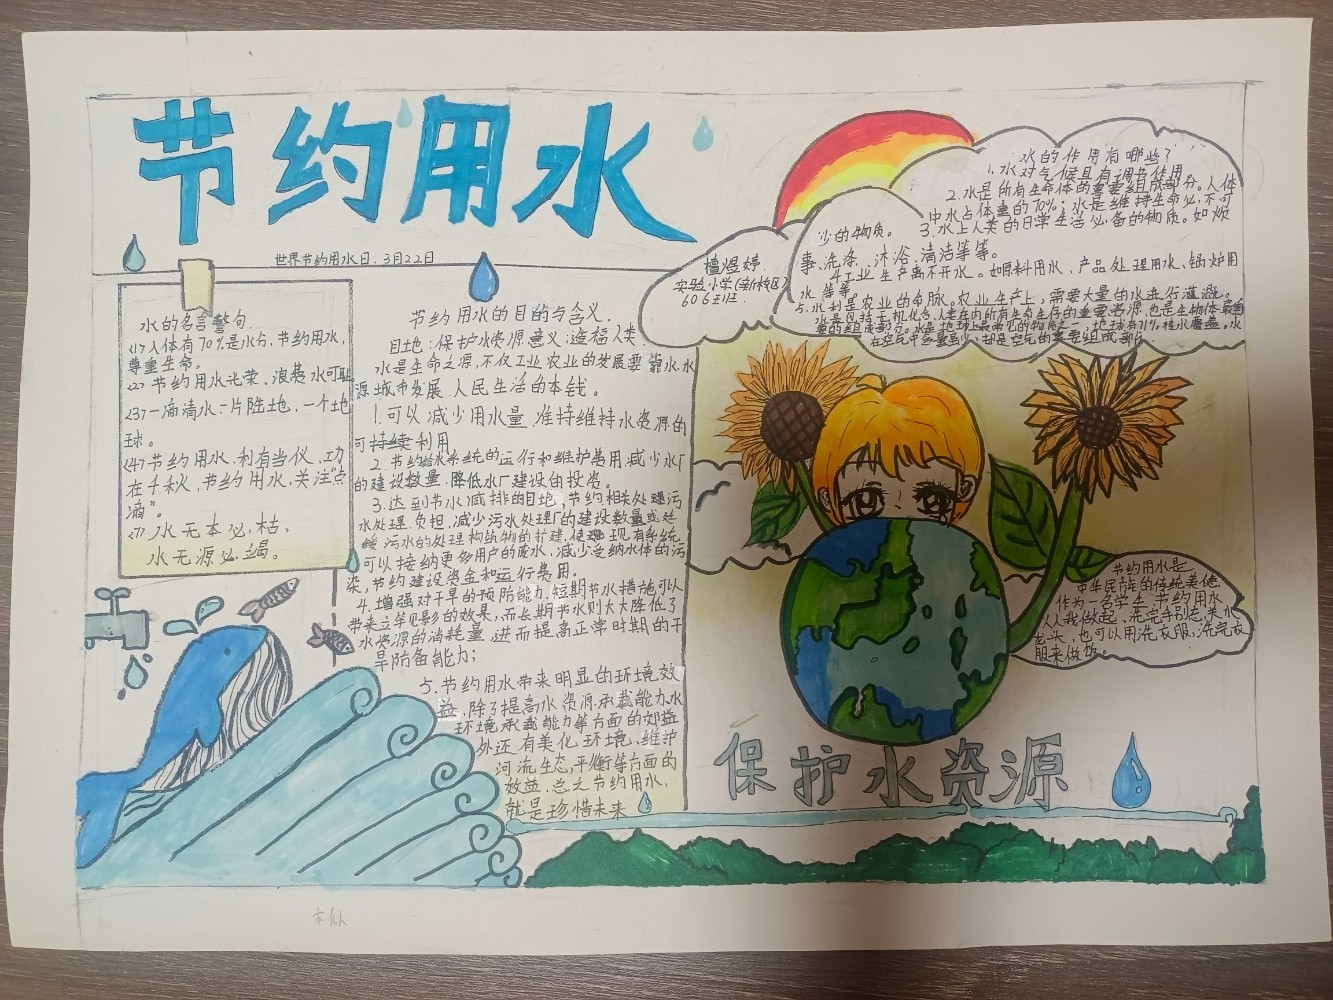 节约用水
世界节约用水日.3月22日
水的名言警句.
<1>人体有70%是水分,节约用水,
尊重生命。
<2>节约用水光荣、浪费水可耻
<37一滴清水一片陆地,一个地
球。
<47节约用水,利有当仪,功
在千秋,节约用水,关注"点
滴"。
水无本必枯,
水无源必竭。
节约用水的目的与含义.
目地:保护水资源意义:造福人类.
水是生命之源,不仅工业农业的发展要靠水,水
源城市发展 人民生活的本钱。
1.可以减少用水量 准持维持水资源的
可持续利用
2.节约给水系统的运行和维护费用.减少水厂
的建设数量.降低水厂建设由投资。
3.达到节水减排的目地,节约相关处理污
水处理负担,减少污水处理厂的建设数量或延
缓污水的处理构筑物的扩建,使现有系统
可以接纳更多用户的废水,减少受纳水体的污
染,节约建设资金和运行费用。
4.增强对干旱的预防能力,短期节水措施可以
带来立竿见影的效果,而长期节水则大大降低了
水资源的消耗量,进而提高正常时期的干
旱防备能力;
5.节约用水带来明显的环境效
益,除了提高水资源承载能力.水
环境承载能力等方面的效益
外还有美化环境、维护
河流生态,平衡等方面的
效益,总之节约用水,
就是珍惜未来
煜婷.
实验小学(新校区)
606班
水的作用有哪些?
1.水对气候具有调节作用
2.水是所有生命体的重要组成部分。人体
中水占体重的70%;水是维持生命必不可
少的物质。 3.水上人类的日常生活必备的物质。如烦
事、洗涤、沐浴、清洁等等。
4工业生产离不开水。如原料用水、产品处理用水、锅炉用
水等等
5.水利是农业的命脉。农业生产上,需要大量的水进行灌溉。
水是包括无机化合、人类在内所有生命生存的重要资源,也是生物体最重
要的组成部分。水是地球上最常见的物质之一,地球有71%被水覆盖。水
在空气中含量虽少,却是空气的重要组成部分。
节约用水是
中华民族的传统美德.
作为一名学生,节约用水
从我做起、洗完手别忘关水
龙头,也可以用洗衣服,洗完衣
服来做饭。
保护水资源